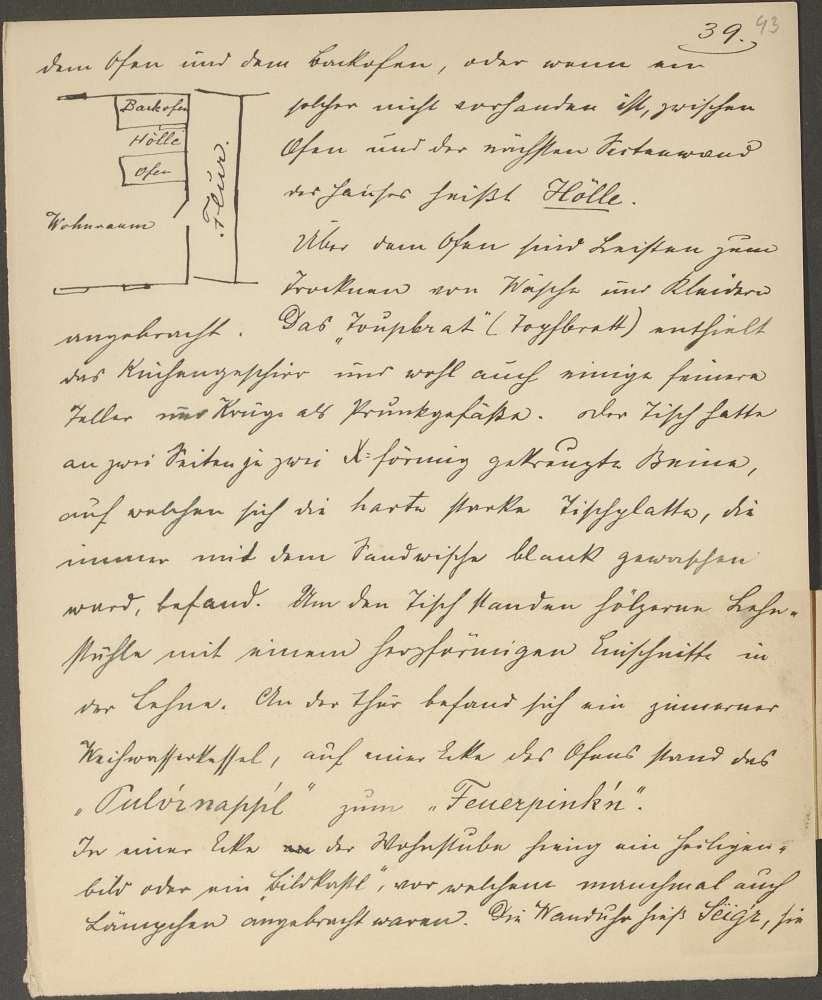 39. 43
dem Ofen und dem Backofen, oder wenn ein
solcher nicht vorhanden ist, zwischen
Ofen und der nächsten Seitenwand
des Hauses heißt Hölle.
Backofen
Hölle
Ofen
Flur.
Wohnraum
Über dem Ofen sind Leisten zum
Trocknen von Wäsche und Kleidern
angebracht. Das „Toupbrat" (Topfbrett) enthielt
das Küchengeschirr und wohl auch einige feinere
Teller und Krüge als Prunkgefäße. Der Tisch hatte
an zwei Seiten je zwei X=förmig gekreuzte Beine,
auf welchen sich die harte starke Tischplatte, die
immer mit dem Sandwische blank gewaschen
ward, befand. Um den Tisch standen hölzerne Lehn-
stühle mit einem herzförmigen Einschnitte in
der Lehne. An der Thür befand sich ein zinnerner
Weihwasserkessel, auf einer Ecke des Ofens stand das
„Pulv'rnapp'l" zum „Feuerpink'n".
In einer Ecke der Wohnstube hieng ein Heiligen-
bild oder ein „Bildkastl", vor welchem manchmal auch
Lämpchen angebracht waren. Die Wanduhr hieß Seig'r, sie